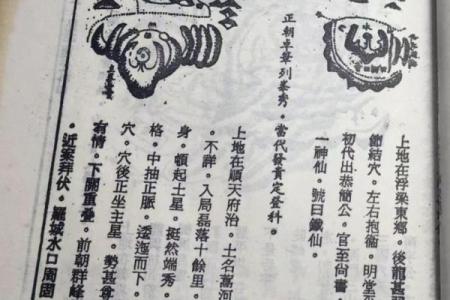 上地在浮梁東鄉。後龍甚
節結穴。左右抱衛。明堂
初代出恭簡公。官至尚書
一神仙。號曰鐵仙。
正朝卓筆列峯秀。當代發貴定登科。
上地在順天府治。土名蒿河
。不詳。入局磊落十餘里。
身。頓起土星。挺然端秀。
格。中抽正脈。逶迤而下。
穴。穴後正坐主星。勢甚尊
有情。下關重疊。前朝群峰
。近案拜伏。羅城水口周固